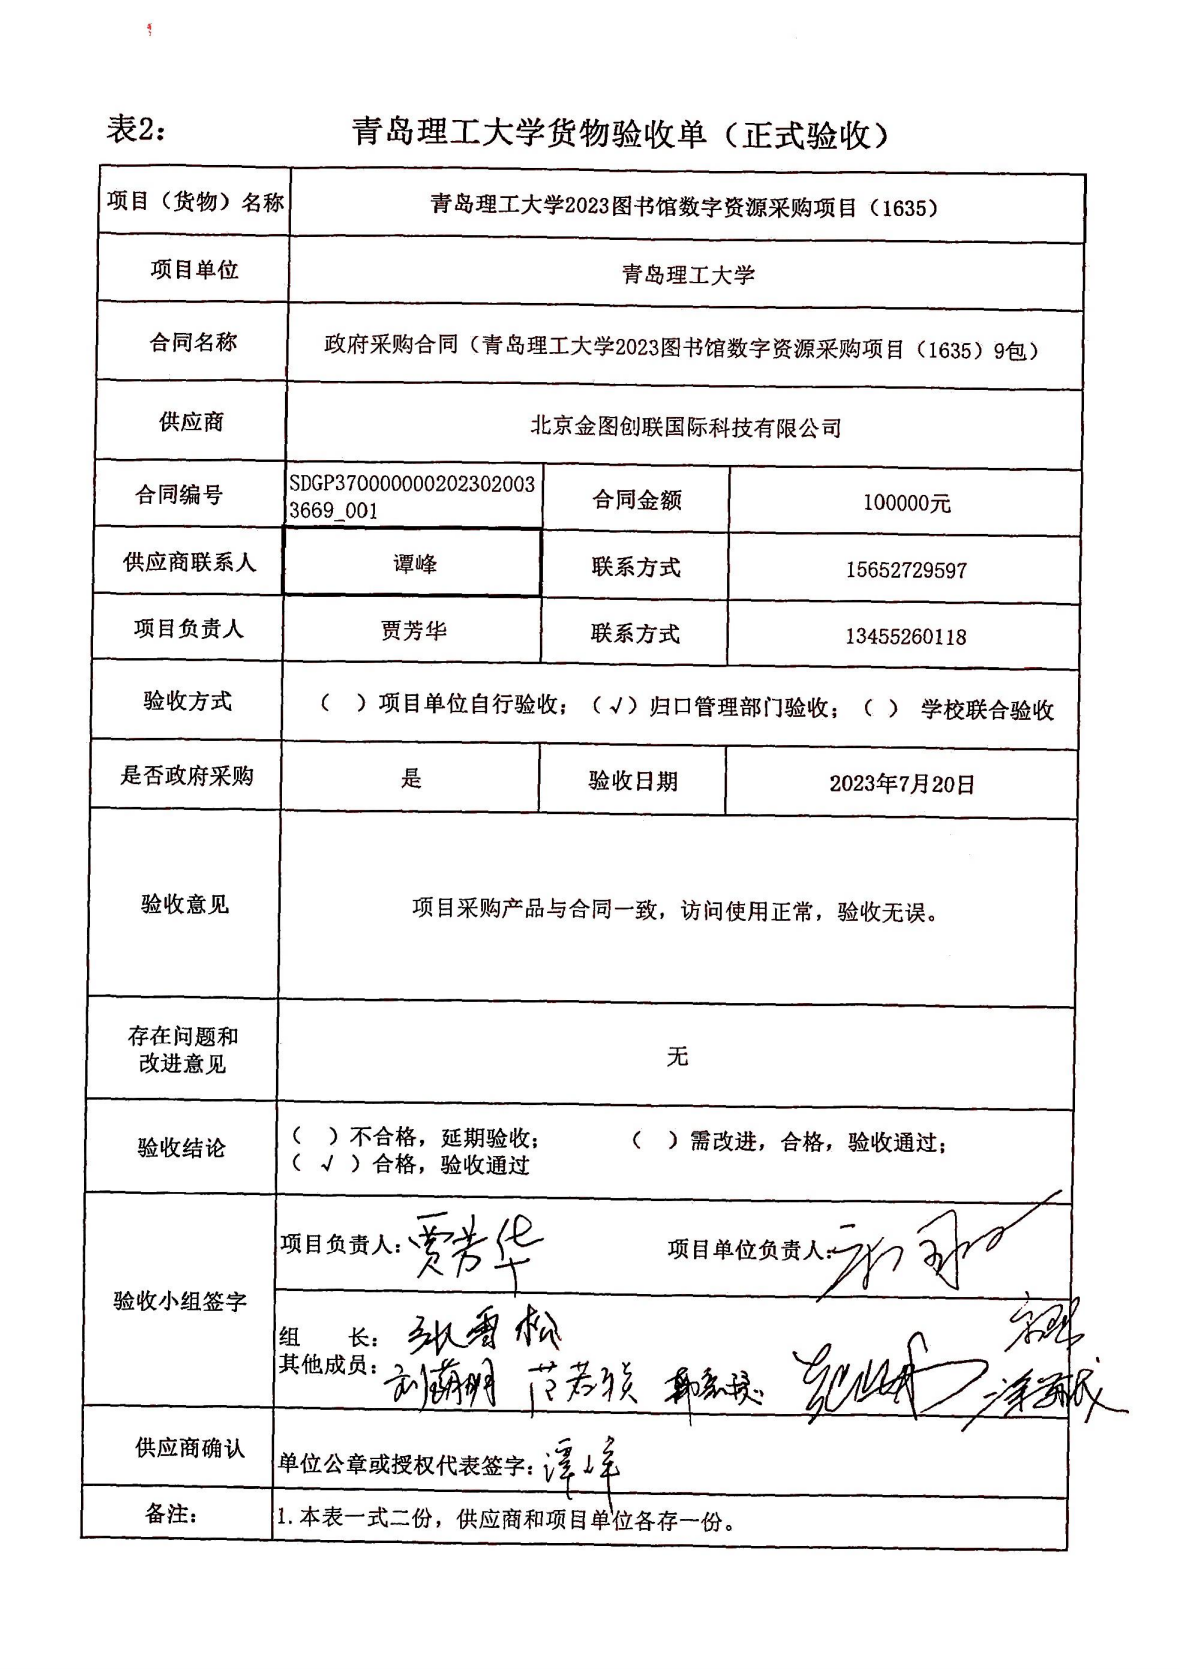 表2： 青岛理工大学货物验收单（正式验收）
项目（货物）名称 青岛理工大学2023图书馆数字资源采购项目（1635）
项目单位 青岛理工大学
合同名称 政府采购合同（青岛理工大学2023图书馆数字资源采购项目（1635）9包）
供应商 北京金图创联国际科技有限公司
合同编号 SDGP370000000202302003
3669_001 合同金额 100000元
供应商联系人 谭峰 联系方式 15652729597
项目负责人 贾芳华 联系方式 13455260118
验收方式 （ ）项目单位自行验收；（√）归口管理部门验收；（ ） 学校联合验收
是否政府采购 是 验收日期 2023年7月20日
验收意见 项目采购产品与合同一致，访问使用正常，验收无误。
存在问题和
改进意见 无
验收结论 （ ）不合格，延期验收； （ ）需改进，合格，验收通过；
（ √ ）合格，验收通过
验收小组签字 项目负责人：贾芳华 项目单位负责人：
组 长：张雪松
其他成员：
供应商确认 单位公章或授权代表签字：谭峰
备注： 1.本表一式二份，供应商和项目单位各存一份。